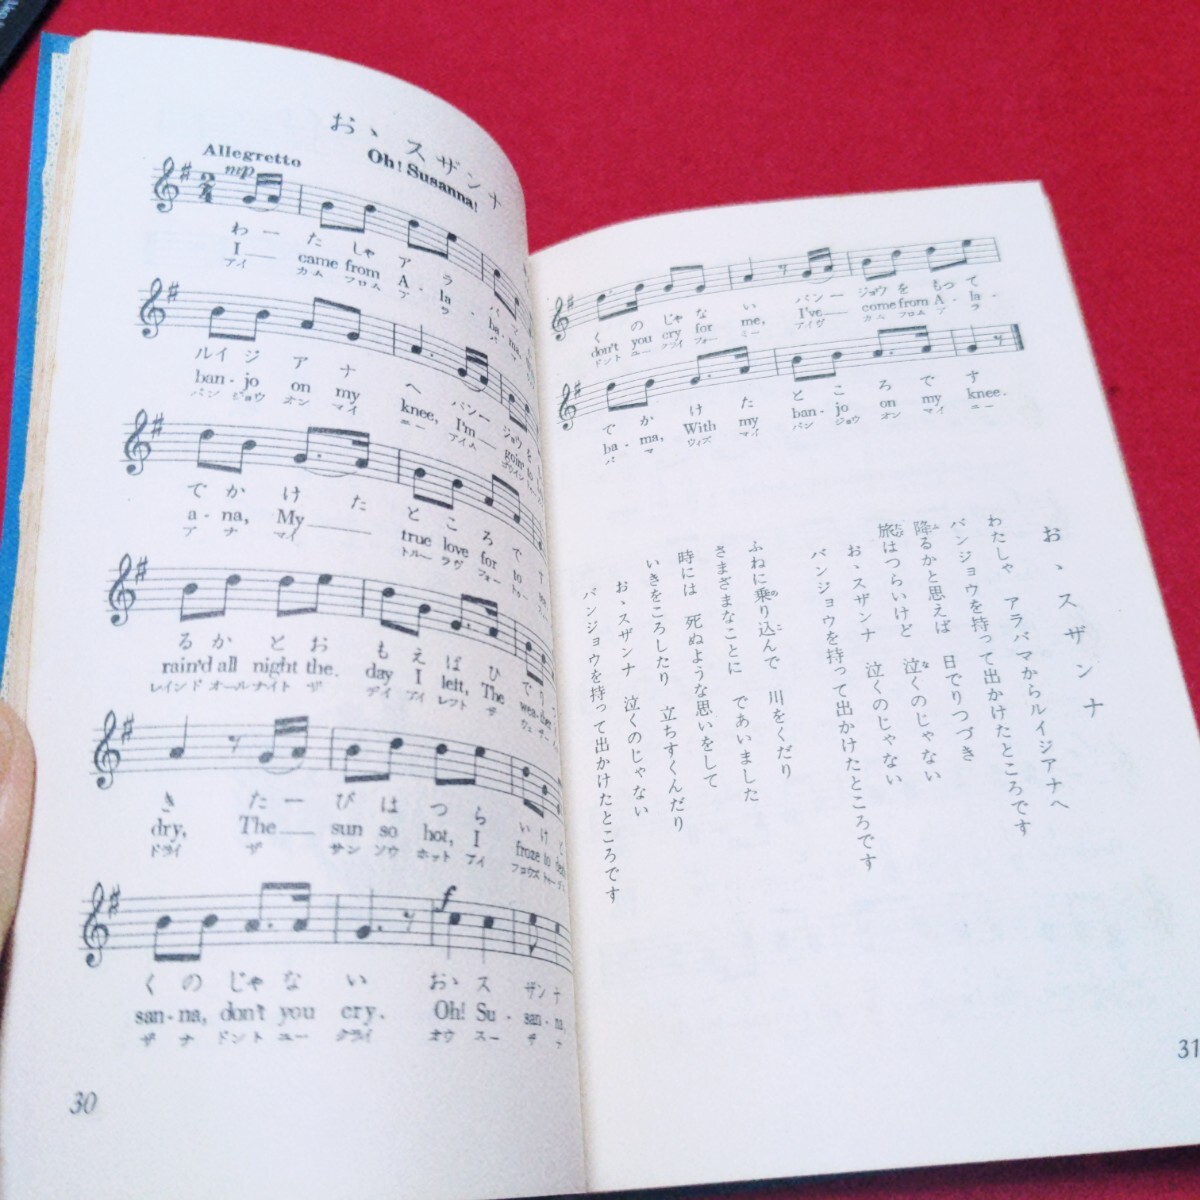 おゝスザンナ
Oh! Susanna!
Allegretto
mp
わーたしゃアラバマ
I came from A-la bama,
アイ カム フロム ア ラ バ マ
ルイジアナへバンージョウをも
ban-jo on my knee, I'm goin' to
バン ジョウ オン マイ ニー アイム
でかけたところです
a-na, My true love for to
ア ナ マイ トルー ラヴ フォー トゥー
るかとおもえばひで
rain'd all night the day I left, The wea-ther
レインド オールナイト ザ デイ アイ レフト ザ ウェ ザー
きたーびはつらいけど
dry, The sun so hot, I froze to
ドライ ザ サン ソウ ホット アイ フロウズ トゥー
f
くのじゃないおゝスザンナ
san-na, don't you cry. Oh! Su-san-na,
ザ ナ ドント ユー クライ オウ スー ザ ナ
30
くのじゃないバンージョウをもって
don't you cry for me, I've come from A-la-
ドント ユー クライ フォー ミー アイヴ カム フロム ア ラ
でかけたところです
ba-ma, With my ban-jo on my knee.
バ マ ウィズ マイ バン ジョウ オン マイ ニー
おゝスザンナ
わたしゃ アラバマからルイジアナへ
バンジョウを持って出かけたところです
降るかと思えば 日でりつづき
旅はつらいけど 泣くのじゃない
おゝスザンナ 泣くのじゃない
バンジョウを持って出かけたところです
ふねに乗り込んで 川をくだり
さまざまなことに であいました
時には 死ぬような思いをして
いきをころしたり 立ちすくんだり
おゝスザンナ 泣くのじゃない
バンジョウを持って出かけたところです
31